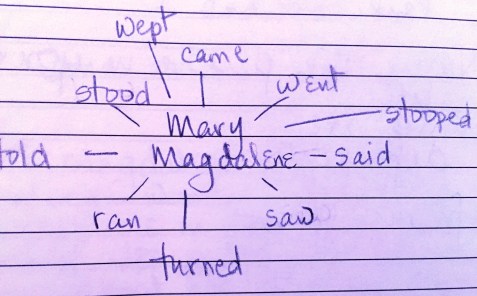 wept
came
stood went
stooped
Mary
told Magdalene said
ran saw
turned